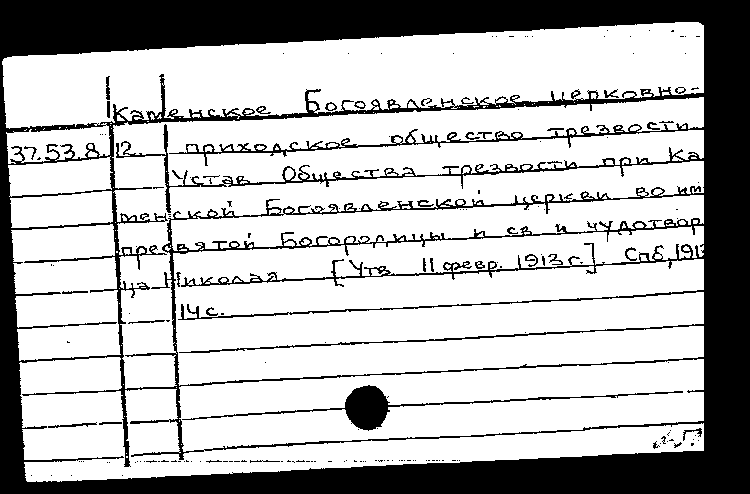 Каменское Богоявленское церковно-
37.53.8.12. приходское общество трезвости.
Устав Общества трезвости при Ка
менской Богоявленской церкви во им
пресвятой Богородицы и св и чудотвор
ца Николая. [Утв 11 февр. 1913 г.]. Спб, 1913
14 с.